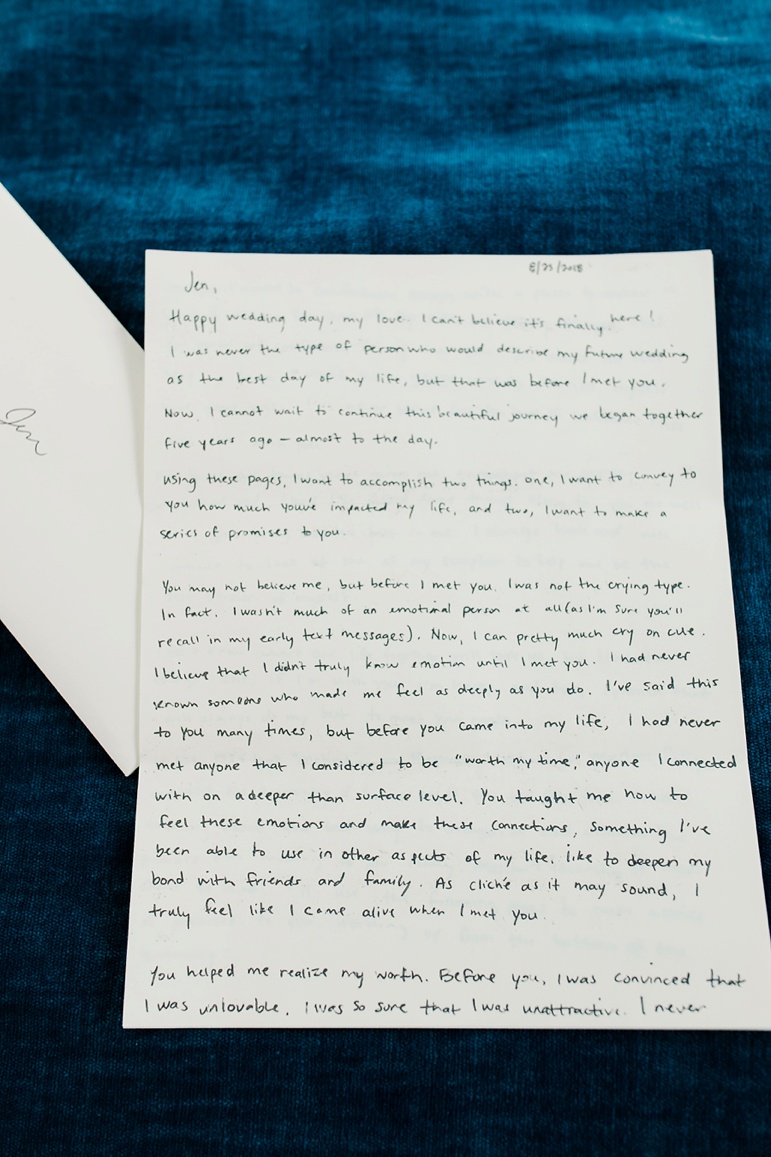 8/25/2018
Jen,
Happy wedding day, my love. I can't believe it's finally here!
I was never the type of person who would describe my future wedding
as the best day of my life, but that was before I met you.
Now, I cannot wait to continue this beautiful journey we began together
five years ago – almost to the day.
using these pages, I want to accomplish two things. one, I want to convey to
you how much you've impacted my life, and two, I want to make a
series of promises to you.
You may not believe me, but before I met you, I was not the crying type.
In fact, I wasn't much of an emotional person at all (as I'm sure you'll
recall in my early text messages). Now, I can pretty much cry on cue.
I believe that I didn't truly know emotion until I met you. I had never
known someone who made me feel as deeply as you do. I've said this
to you many times, but before you came into my life, I had never
met anyone that I considered to be "worth my time," anyone I connected
with on a deeper than surface level. You taught me how to
feel these emotions and make these connections, something I've
been able to use in other aspects of my life, like to deepen my
bond with friends and family. As cliché as it may sound, I
truly feel like I came alive when I met you.
You helped me realize my worth. Before you, I was convinced that
I was unlovable. I was so sure that I was unattractive. I never
Jen